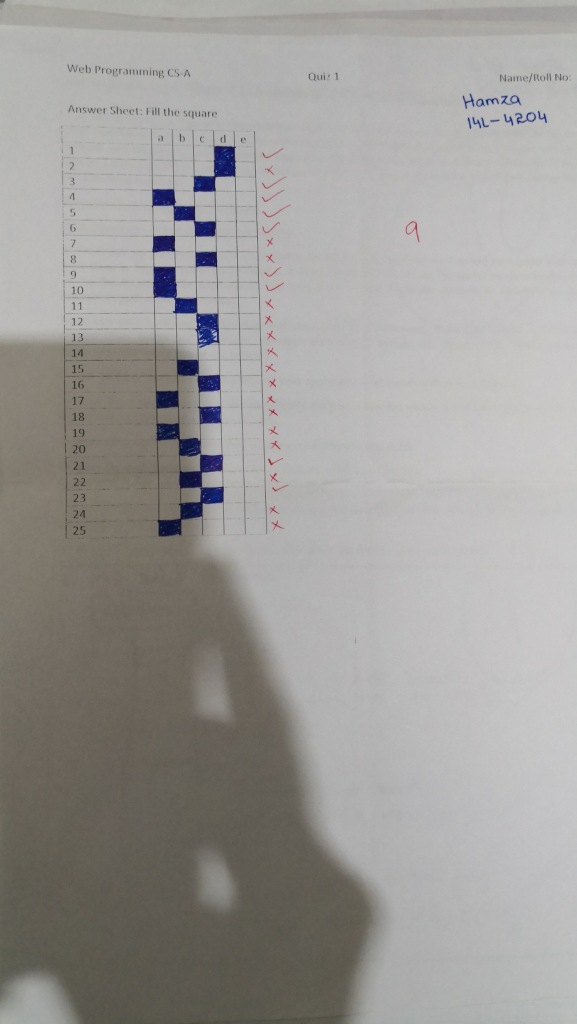 Web Programming CS-A Quiz 1 Name/Roll No:
Hamza
14L-4204
Answer Sheet: Fill the square
a b c d e
1 ✓
2 ×
3 ✓
4 ✓
5 ✓
6 ✓
7 ×
8 ×
9 ✓
10 ✓
11 ×
12 ×
13 ×
14 ×
15 ×
16 ×
17 ×
18 ×
19 ×
20 ×
21 ✓
22 ×
23 ✓
24 ×
25 ×
9